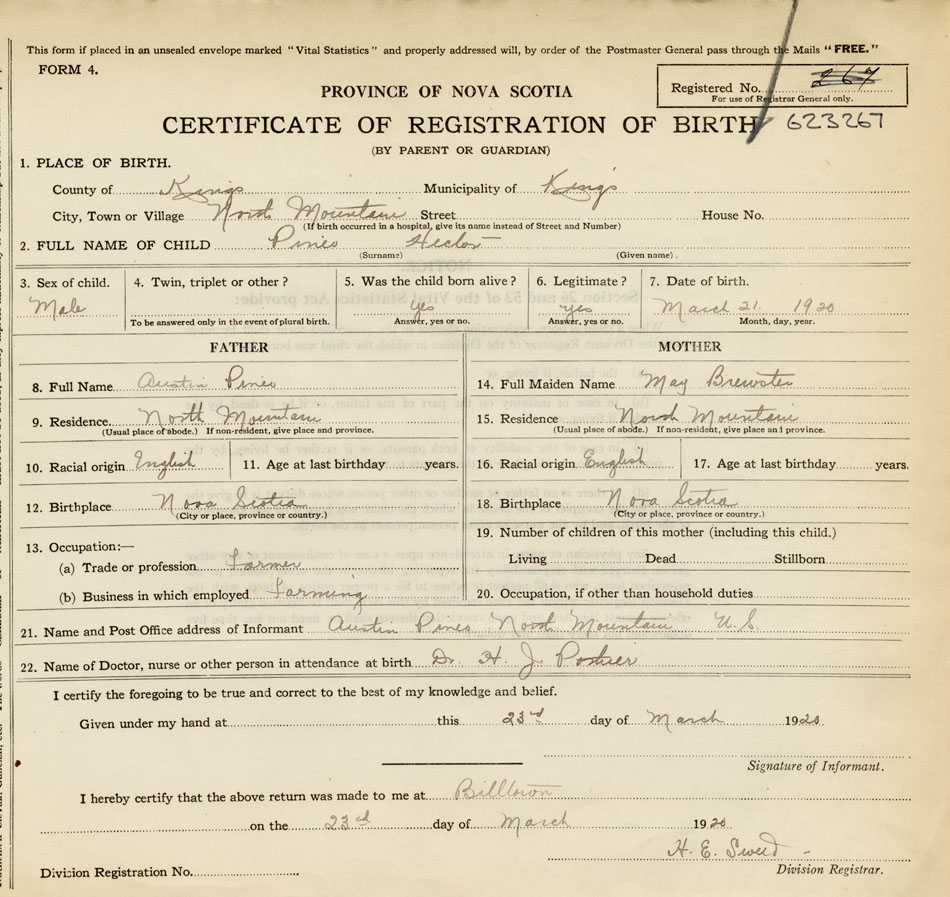 This form if placed in an unsealed envelope marked "Vital Statistics" and properly addressed will, by order of the Postmaster General pass through the Mails "FREE."
FORM 4.
Registered No. 267
For use of Registrar General only.
PROVINCE OF NOVA SCOTIA
CERTIFICATE OF REGISTRATION OF BIRTH 623267
(BY PARENT OR GUARDIAN)
1. PLACE OF BIRTH.
County of Kings Municipality of Kings
City, Town or Village North Mountain Street House No.
(If birth occurred in a hospital, give its name instead of Street and Number)
2. FULL NAME OF CHILD Pineo Hector
(Surname) (Given name)
3. Sex of child. 4. Twin, triplet or other? 5. Was the child born alive? 6. Legitimate? 7. Date of birth.
Male yes yes March 21. 1920
To be answered only in the event of plural birth. Answer, yes or no. Answer, yes or no. Month, day, year.
FATHER MOTHER
8. Full Name Austin Pineo 14. Full Maiden Name May Brewster
9. Residence North Mountain 15. Residence North Mountain
(Usual place of abode.) If non-resident, give place and province. (Usual place of abode.) If non-resident, give place and province.
10. Racial origin English 11. Age at last birthday years. 16. Racial origin English 17. Age at last birthday years.
12. Birthplace Nova Scotia 18. Birthplace Nova Scotia
(City or place, province or country.) (City or place, province or country.)
13. Occupation:— 19. Number of children of this mother (including this child.)
(a) Trade or profession Farmer Living Dead Stillborn
(b) Business in which employed Farming 20. Occupation, if other than household duties
21. Name and Post Office address of Informant Austin Pineo North Mountain N.S.
22. Name of Doctor, nurse or other person in attendance at birth Dr. H. J.
I certify the foregoing to be true and correct to the best of my knowledge and belief.
Given under my hand at this 23rd day of March 1920
Signature of Informant.
I hereby certify that the above return was made to me at Billtown
on the 23rd day of March 1920
H. E.
Division Registration No. Division Registrar.